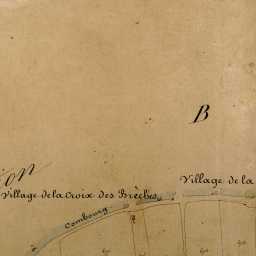 B
on
Village de la
Village de la Croix des Brèches
Combourg